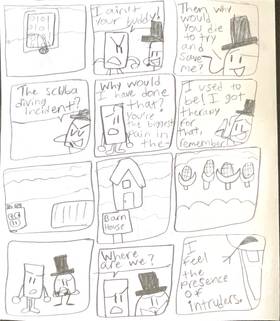 I ain't
your buddy!
Then why
would
you die
to try
and
save
me?
The scuba
diving
incident?
Why would
I have done
that?
You're
the biggest
pain in
the
I used to
be! I got
therapy
for
that,
remember!
Barn
House
Where
are we?
I
feel
the
presence
of
intruders.